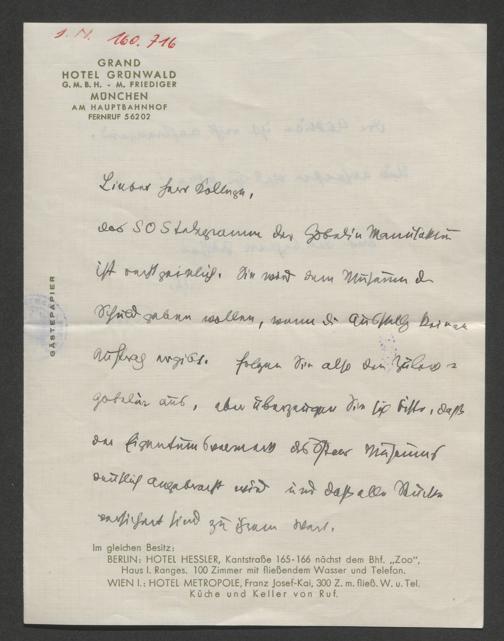 I. N. 160.716
GRAND
HOTEL GRÜNWALD
G. M. B. H. - M. FRIEDIGER
MÜNCHEN
AM HAUPTBAHNHOF
FERNRUF 56202
GÄSTEPAPIER
Lieber Herr
das SOS telegramm der Gobelin Manufaktur
ist recht peinlich. Sie wird dem Museum die
Schuld geben wollen, wenn die Ausstellg keinen
Auftrag ergibt. Folgen Sie also den
gobelin aus, aber überzeugen Sie sich bitte, daß
der Eigentumsvermerk des Museums
deutlich angebracht wird und daß alle Stücke
versichert sind zu Ihrem Wert.
Im gleichen Besitz:
BERLIN: HOTEL HESSLER, Kantstraße 165-166 nächst dem Bhf. „Zoo",
Haus I. Ranges. 100 Zimmer mit fließendem Wasser und Telefon.
WIEN I.: HOTEL METROPOLE, Franz Josef-Kai, 300 Z. m. fließ. W. u. Tel.
Küche und Keller von Ruf.